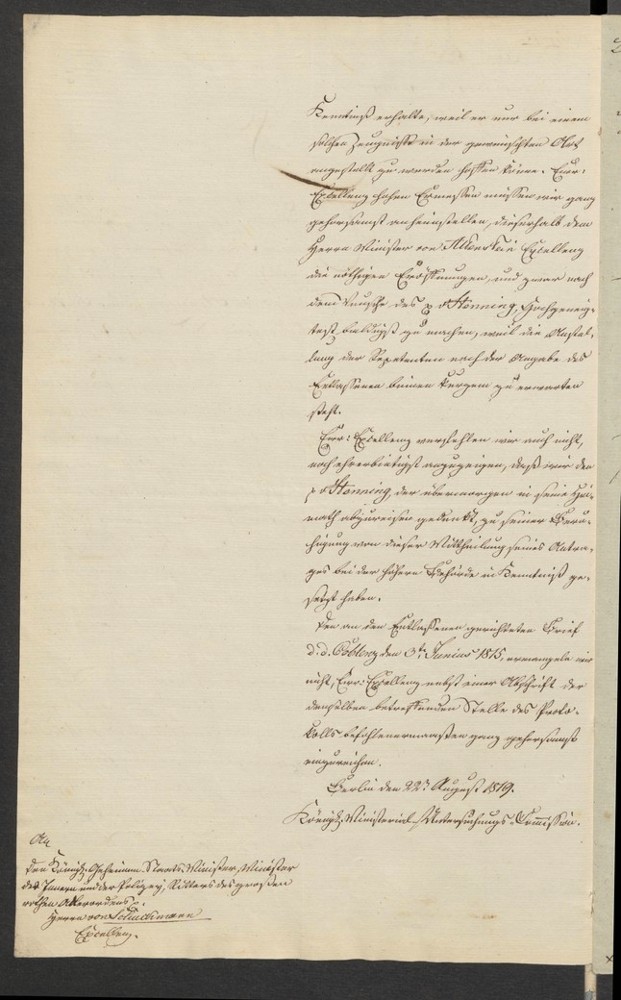 Kenntniß erhalte, weil er nur bei einem
solchen Zeugnisse in der gewünschten Art
angestellt zu werden hoffen könne. Euer:
Excellenz hohen Ermessen müssen wir ganz
gehorsamst anheimstellen, dieserhalb dem
Herrn Minister von Altenstein Excellenz
die nöthigen Eröffnungen, und zwar nach
dem Wunsche des p v Henning, hochgeneig-
test baldigst zu machen, weil die Anstel-
lung der Repetenten nach der Angabe des
Entlassenen binnen Kurzem zu erwarten
steht.
Euer: Excellenz verfehlen wir auch nicht,
noch ehrerbietigst anzuzeigen, daß wir den
p v Henning, der übermorgen in seine Hei-
math abzureisen gedenkt, zu seiner Beru-
higung von dieser Mittheilung seines Antra-
ges bei der höhern Behörde in Kenntniß ge-
setzt haben.
Den an den Entlassenen gerichteten Brief
d. d. Coblenz den Junius 1815, ermangeln wir
nicht, Euer: Excellenz nebst einer Abschrift der
denselben betreffenden Stelle des Proto-
kolls befohlenermaaßen ganz gehorsamst
einzureichen.
Berlin den 22n August 1819.
Königl. Ministerial-Untersuchungs-Commission.
An
den Königl. Geheimen Staats-Minister, Minister
des Innern und der Polizey, Ritter des großen
rothen Adlerordens
Herrn von Schuckmann
Excellenz.